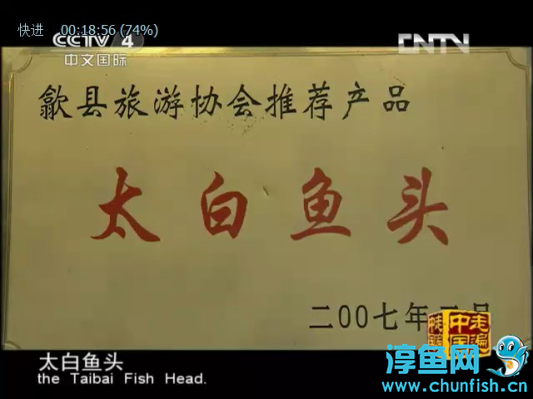 快进 00:18:56 (74%)
CCTV 4
中文国际
CNTN
歙县旅游协会推荐产品
太白鱼头
二00七年
走遍
中国
太白鱼头
the Taibai Fish Head.
淳鱼网
www.chunfish.cn